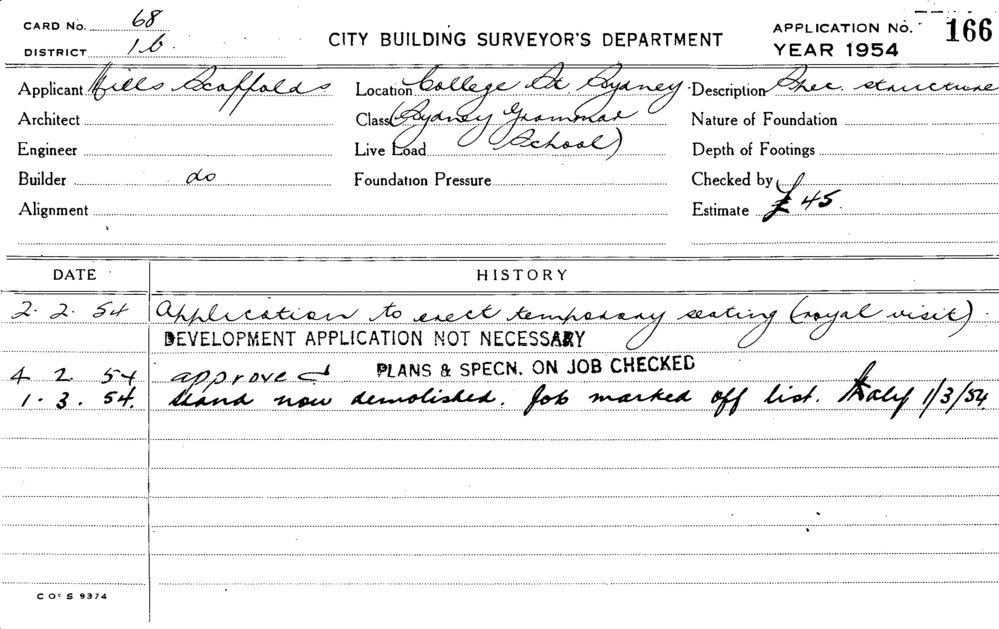 CARD No. 68
DISTRICT 1b.
CITY BUILDING SURVEYOR'S DEPARTMENT
APPLICATION No. 166
YEAR 1954
Applicant Mills Scaffolds Location College St. Sydney Description Spec. structure
Architect Class (Sydney Grammar Nature of Foundation
Engineer Live Load School) Depth of Footings
Builder do Foundation Pressure Checked by
Alignment Estimate £ 45.
DATE HISTORY
2. 2. 54 Application to erect temporary seating (royal visit).
DEVELOPMENT APPLICATION NOT NECESSARY
4 2. 54 approved PLANS & SPECN. ON JOB CHECKED
1. 3. 54. Stand now demolished. Job marked off list. 1/3/54
C OF S 9374